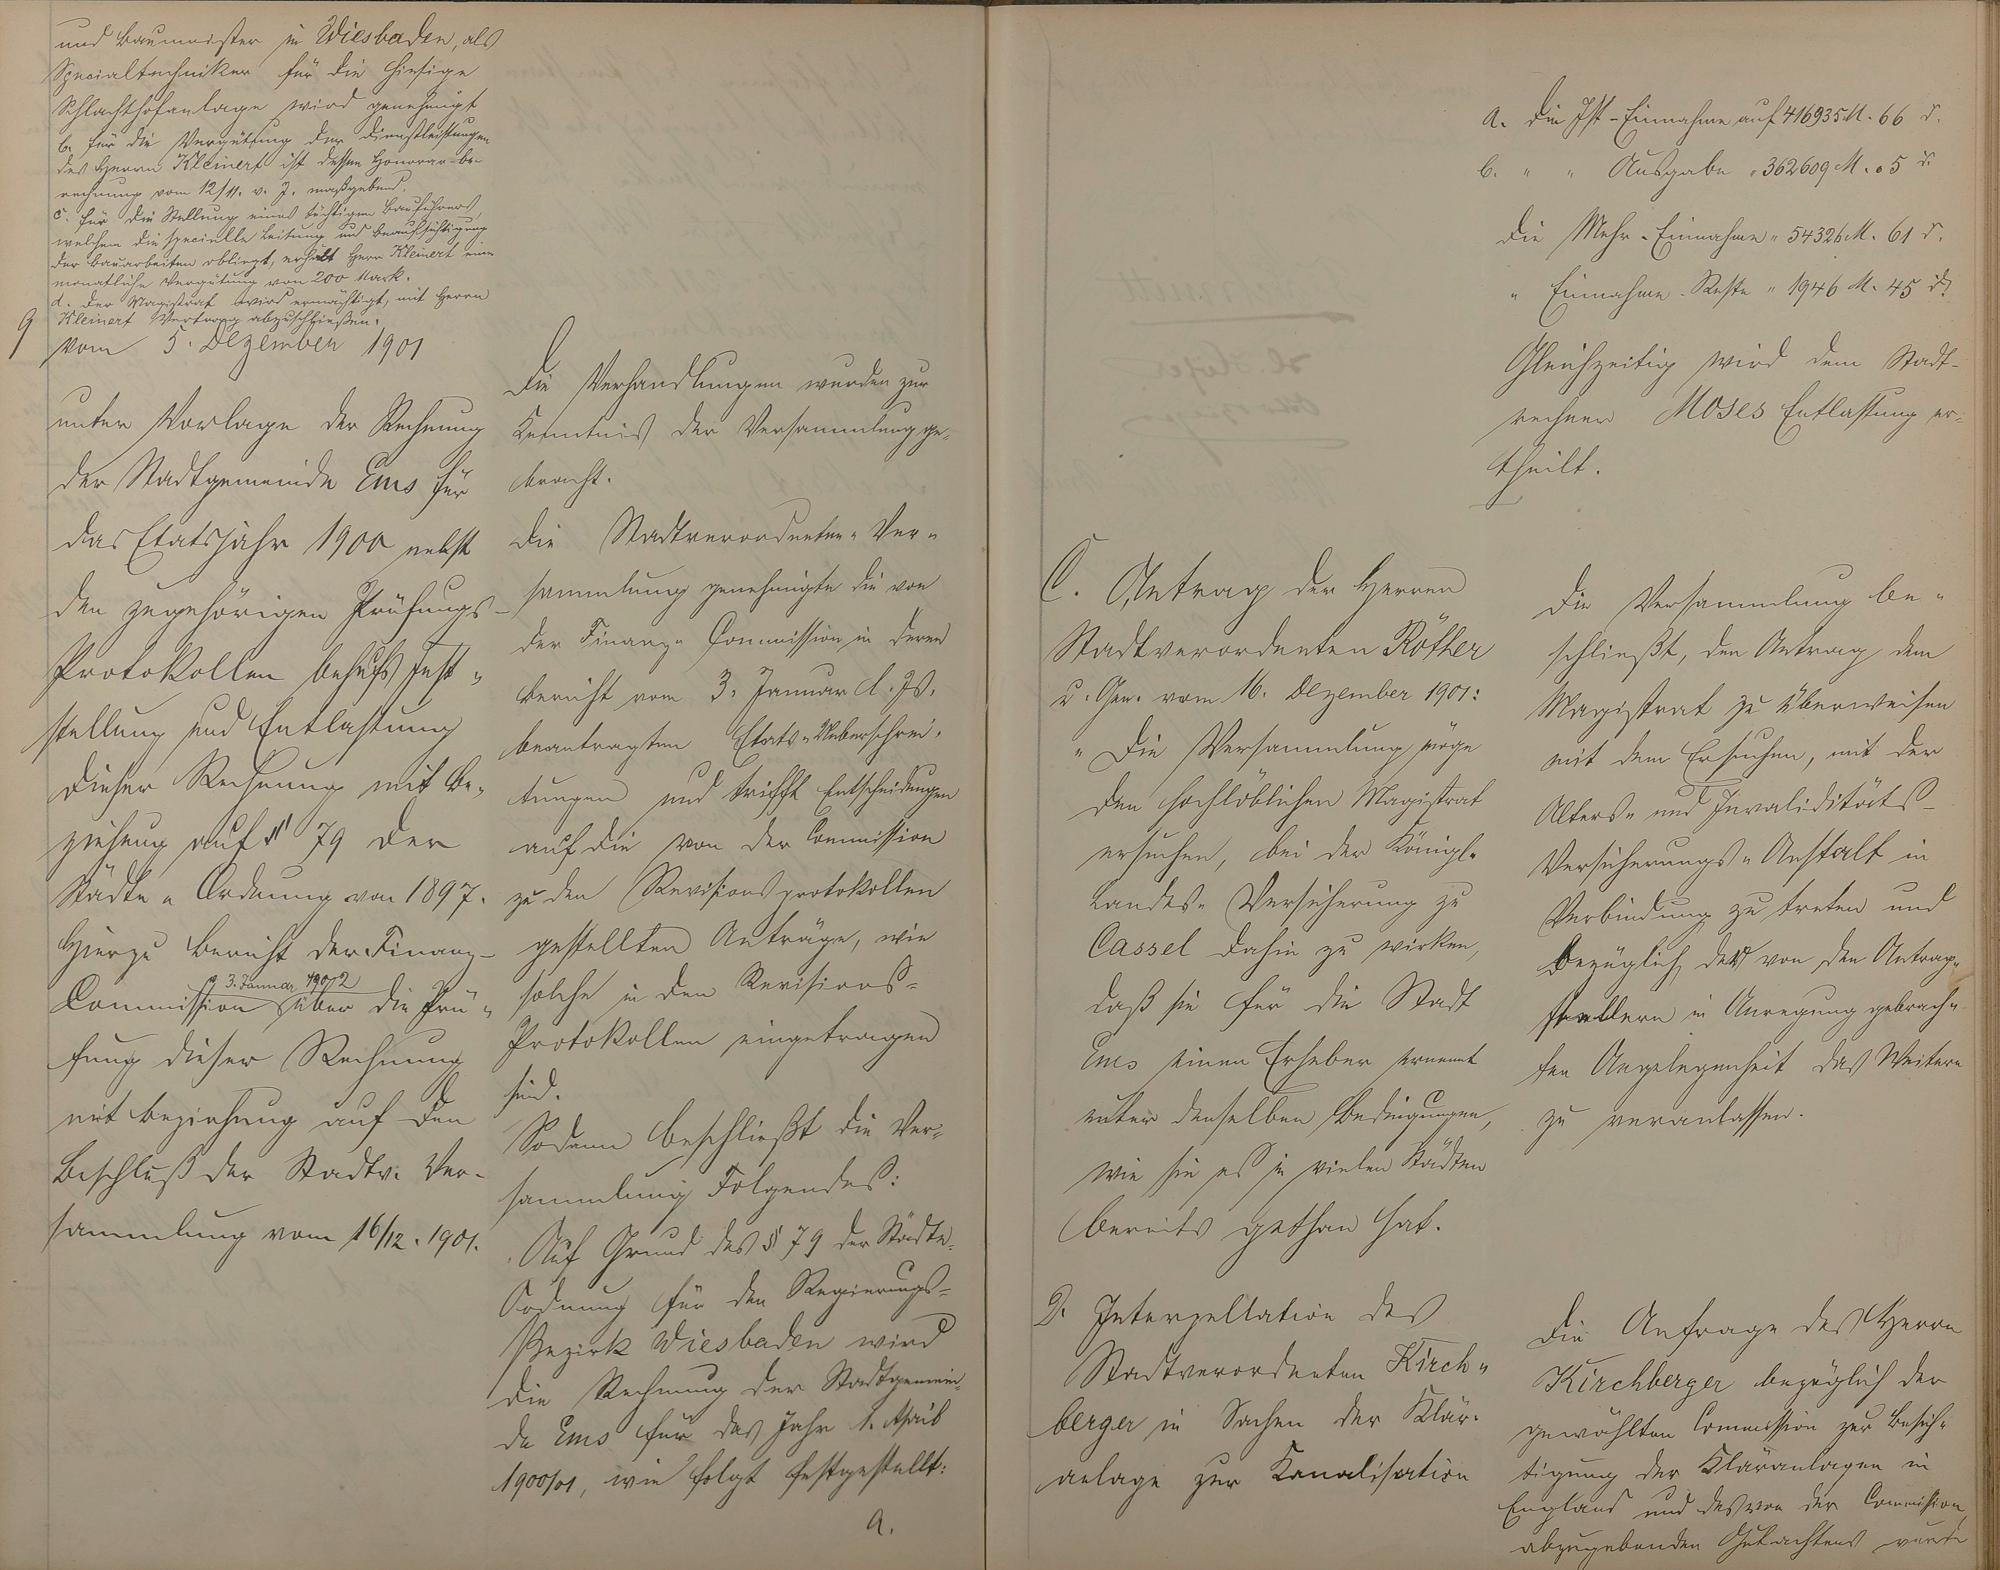 und Baumeister in Wiesbaden, als
Specialtechniker für die hiesige
Schlachthofanlage wird genehmigt
b. für die Vergütung der Dienstleistungen
des Herrn Kleinert ist dessen Honorar-be-
rechnung vom 12/11. v. J. maßgebend.
c. für die Stellung eines tüchtigen Bauführers,
welchem die specielle Leitung und Beaufsichtigung
der Bauarbeiten obliegt, erhält Herr Kleinert eine
monatliche Vergütung von 200 Mark.
d. Der Magistrat wird ermächtigt, mit Herrn
Kleinert Vertrag abzuschließen.
9 vom 5. Dezember 1901
unter Vorlage der Rechnung
der Stadtgemeinde Ems für
das Etatsjahr 1900 nebst
den zugehörigen Prüfungs-
Protokollen behufs Fest-
stellung und Entlastung
dieser Rechnung mit Be-
ziehung auf § 79 der
Städte-Ordnung von 1897.
Hierzu Bericht der Finanz-
3. Januar 1902
Commission über die Prü-
fung dieser Rechnung
mit Beziehung auf den
Beschluß der Stadtv. Ver-
sammlung vom 16/12. 1901.
Die Verhandlungen wurden zur
Kenntniß der Versammlung ge-
bracht.
Die Stadtverordneten-Ver-
sammlung genehmigte die von
der Finanz-Commission in deren
Bericht vom 3. Januar d. Js.
beantragten Etats-Ueberschrei-
tungen und trifft Entscheidungen
auf die von der Commission
zu den Revisionsprotokollen
gestellten Anträge, wie
solche in den Revisions-
Protokollen eingetragen
sind.
Sodann beschließt die Ver-
sammlung Folgendes:
Auf Grund des § 79 der Städte-
Ordnung für den Regierungs-
Bezirk Wiesbaden wird
die Rechnung der Stadtgemein-
de Ems für das Jahr 1. April
1900/01, wie folgt festgestellt:
a.
a. die Ist-Einnahme auf 416935 M. 66 d.
b. " " Ausgabe " 362609 M. 05 d.
die Mehr-Einnahme " 54326 M. 61 d.
" Einnahme-Reste " 1946 M. 45 d.
Gleichzeitig wird dem Stadt-
rechner Moses Entlastung er-
theilt.
C. Antrag der Herren
Stadtverordneten Röther
u. Gen. vom 16. Dezember 1901:
" Die Versammlung möge
den hochlöblichen Magistrat
ersuchen, bei der Königl.
Landes-Versicherung zu
Cassel dahin zu wirken,
daß sie für die Stadt
Ems einen Erheber ernennt
unter denselben Bedingungen,
wie sie es in vielen Städten
bereits gethan hat.
Die Versammlung be-
schließt, den Antrag dem
Magistrat zu überweisen
mit dem Ersuchen, mit der
Alters- und Invaliditäts-
Versicherungs-Anstalt in
Verbindung zu treten und
bezüglich der von den Antrag-
stellern in Anregung gebrach-
ten Angelegenheit das Weitere
zu veranlassen.
D. Interpellation des
Stadtverordneten Kirch-
berger in Sachen der Klär-
anlage zur Kanalisation
Die Anfrage des Herrn
Kirchberger bezüglich der
gewählten Commission zur Besich-
tigung der Kläranlagen in
England und des von der Commission
abzugebenden Gutachtens wurde